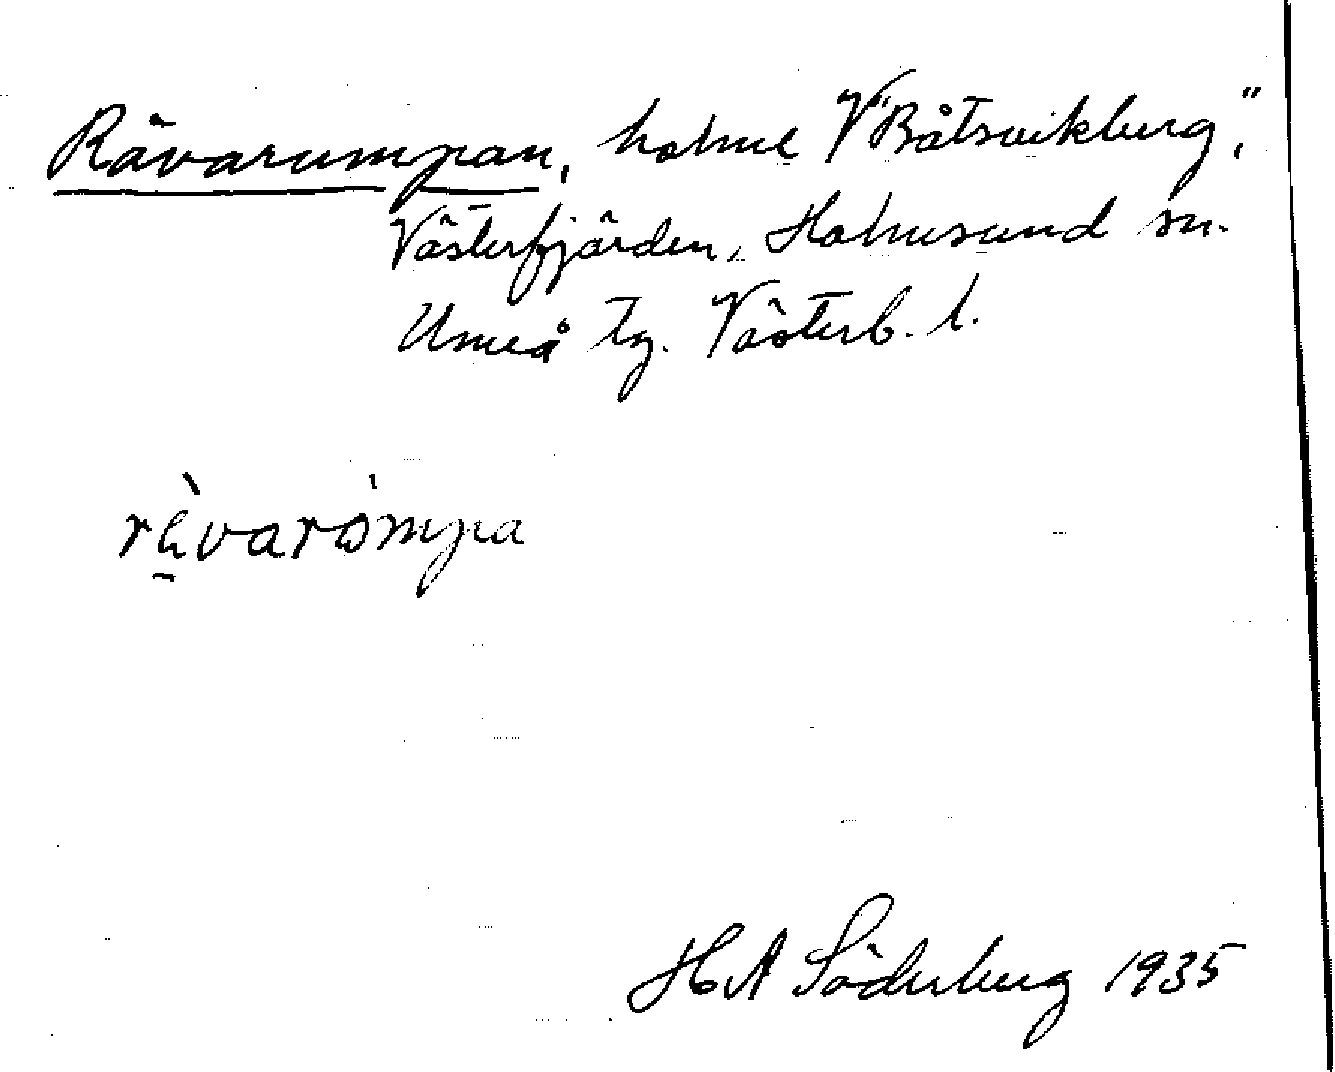 Rävarumpan, holme V "Båtsvikberg",
Västerfjärden, Holmsund sn.
Umeå tg. Västerb. l.
rävarompa
H A Söderberg 1935